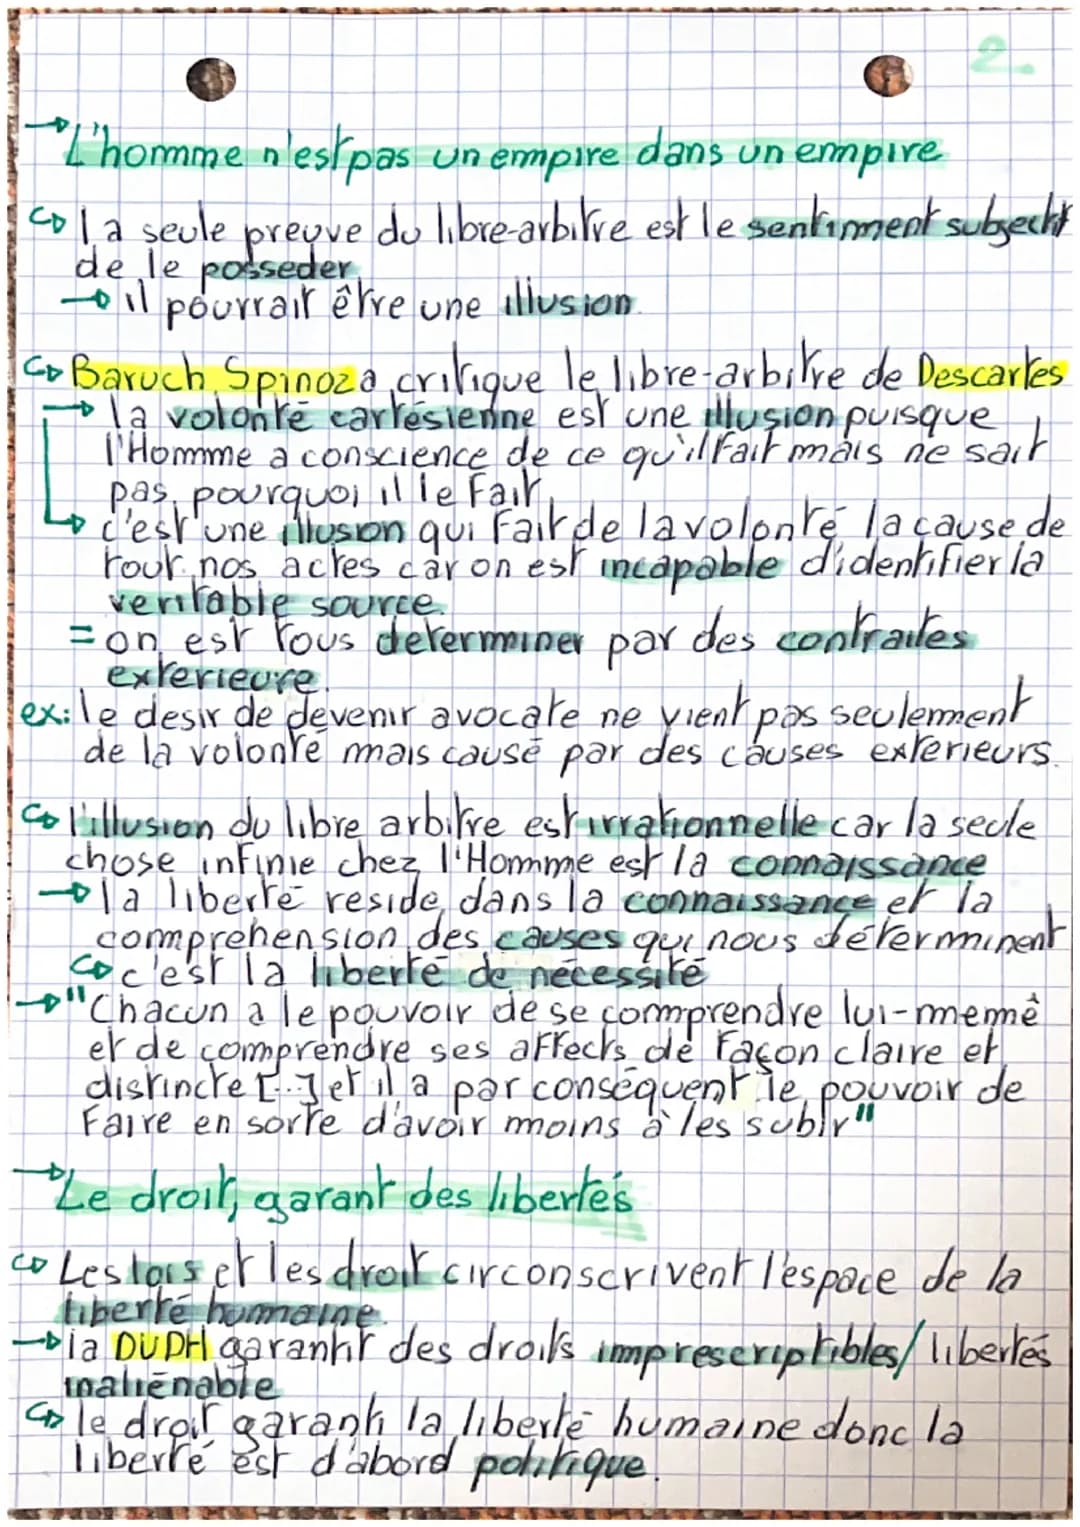 2.
→ L'homme n'est pas un empire dans un empire
↪ la seule preuve du libre-arbitre est le sentiment subjectif
de le posseder
→ il pourrait être une illusion.
↪ Baruch Spinoza critique le libre-arbitre de Descartes
→ la volonté cartésienne est une illusion puisque
l'Homme a conscience de ce qu'il fait mais ne sait
pas pourquoi il le fait.
↪ c'est une illusion qui fait de la volonté la cause de
tout nos actes car on est incapable d'identifier la
veritable source.
= on est tous determiner par des contraites
exterieure.
ex: le desir de devenir avocate ne vient pas seulement
de la volonté mais causé par des causes exterieurs.
↪ l'illusion du libre arbitre est irrationnelle car la seule
chose infinie chez l'Homme est la connaissance
→ la liberté reside dans la connaissance et la
comprehension des causes qui nous déterminent
↪ c'est la liberté de nécessité
→ "Chacun a le pouvoir de se comprendre lui-memê
et de comprendre ses affects de façon claire et
distincte [...] et il a par conséquent le pouvoir de
faire en sorte d'avoir moins à les subir"
→ Le droit, garant des libertés
↪ Les lois et les droit circonscrivent l'espace de la
liberté humaine.
→ la DUDH garantit des droits imprescriptibles/libertés
inaliénable
↪ le droit garanti la liberté humaine donc la
liberté est d'abord politique.